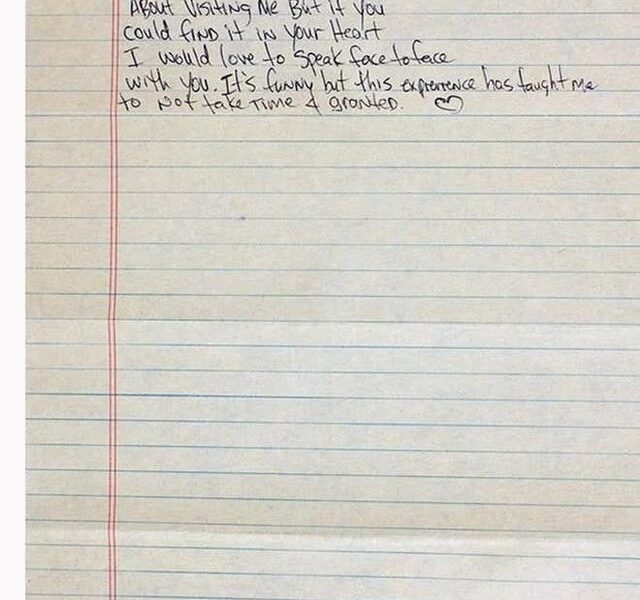 About Visiting Me But if you
could find it in your Heart
I would love to speak face to face
with you. It's funny but this exprerence has taught me
to not take time 4 granted. ♡